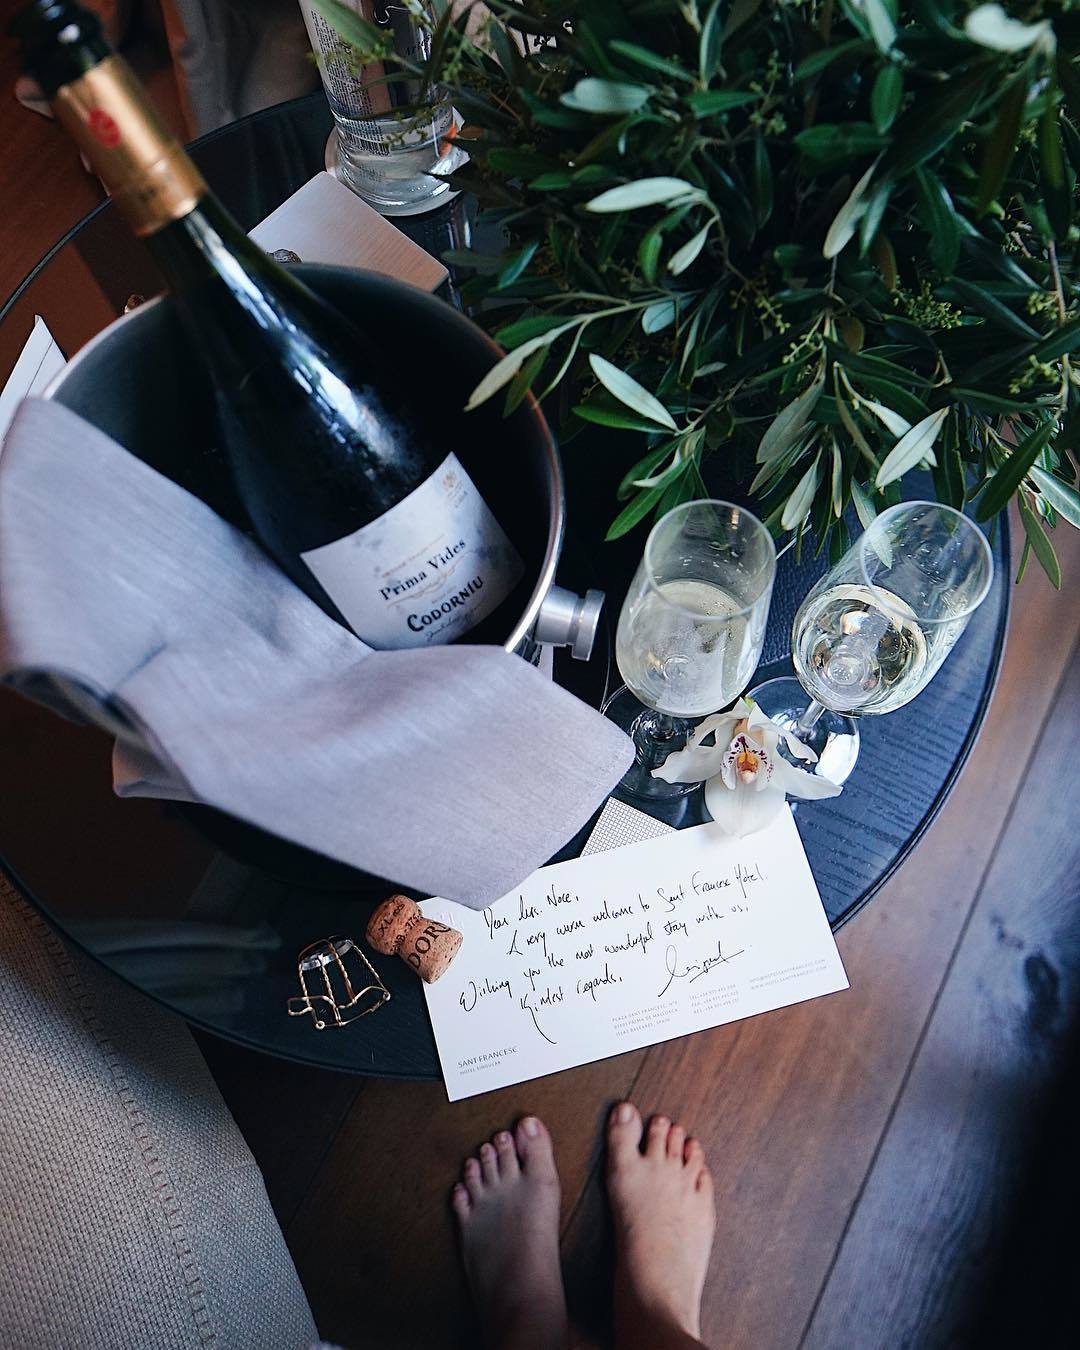 Prima Vides
CODORNÍU
Dear Mrs. Noce,
A very warm welcome to Sant Francesc Hotel.
Wishing you the most wonderful stay with us,
Kindest regards,
DOR
SANT FRANCESC
HOTEL SINGULAR
PLAZA SANT FRANCESC, Nº5
07001 PALMA DE MALLORCA
ISLAS BALEARES, SPAIN
INFO@HOTELSANTFRANCESC.COM
WWW.HOTELSANTFRANCESC.COM